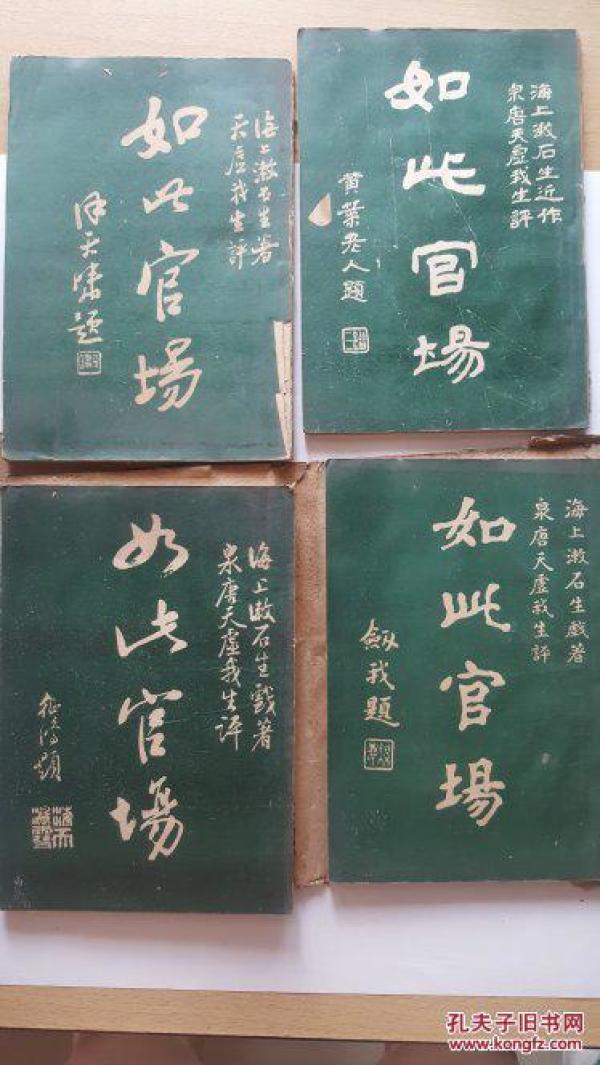 海上漱石生著
天虛我生評
如此官場
徐天嘯題
海上漱石生近作
泉唐天虛我生評
如此官場
黃葉老人題
海上漱石生戲著
泉唐天虛我生評
如此官場
題
海上漱石生戲著
泉唐天虛我生評
如此官場
劍我題
孔夫子旧书网
www.kongfz.com